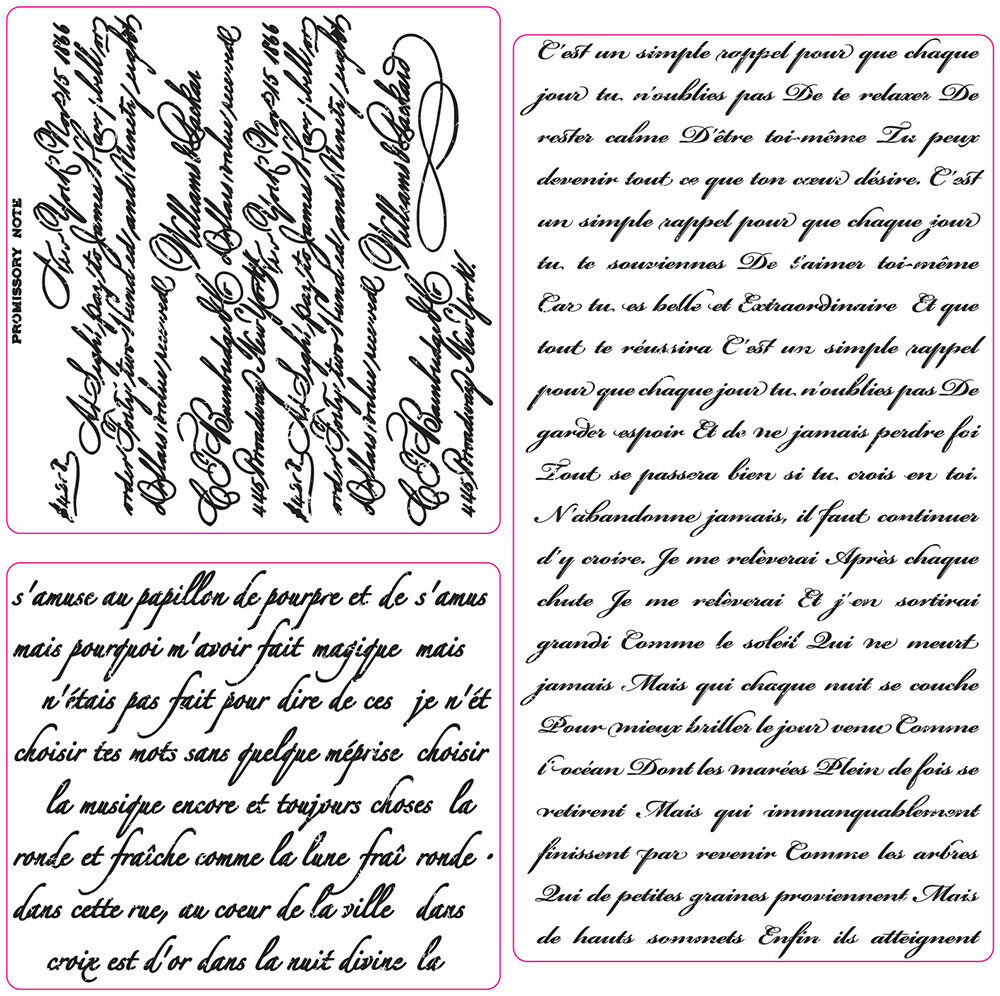 PROMISSORY NOTE
New York Nov 15 1866
At Sight, pay to James
order Forty two Hundred and Ninety eight
Dollars value received
Williams & Barker
445 Broadway New York.
New York Nov 15 1866
At Sight, pay to James
order Forty two Hundred and Ninety eight
Dollars value received
Williams & Barker
445 Broadway New York.
s'amuse au papillon de pourpre et de s'amus
mais pourquoi m'avoir fait magique mais
n'étais pas fait pour dire de ces je n'ét
choisir tes mots sans quelque méprise choisir
la musique encore et toujours choses la
ronde et fraîche comme la lune fraî ronde •
dans cette rue, au coeur de la ville dans
croix est d'or dans la nuit divine la
C'est un simple rappel pour que chaque
jour tu n'oublies pas De te relaxer De
rester calme D'être toi-même Tu peux
devenir tout ce que ton cœur désire. C'est
un simple rappel pour que chaque jour
tu te souviennes De t'aimer toi-même
Car tu es belle et Extraordinaire Et que
tout te réussira C'est un simple rappel
pour que chaque jour tu n'oublies pas De
garder espoir Et de ne jamais perdre foi
Tout se passera bien si tu crois en toi.
N'abandonne jamais, il faut continuer
d'y croire. Je me relèverai Après chaque
chute Je me relèverai Et j'en sortirai
grandi Comme le soleil Qui ne meurt
jamais Mais qui chaque nuit se couche
Pour mieux briller le jour venu Comme
l'océan Dont les marées Plein de fois se
retirent Mais qui immanquablement
finissent par revenir Comme les arbres
Qui de petites graines proviennent Mais
de hauts sommets Enfin ils atteignent